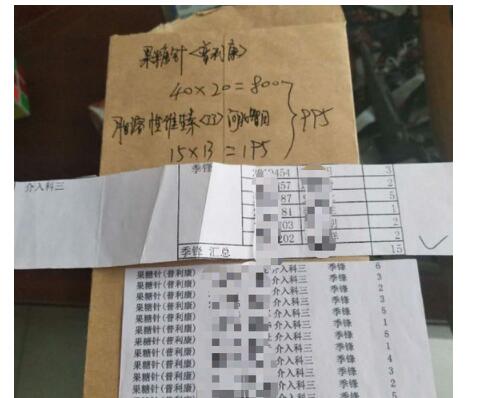 果糖针<普利康>
40×20=800
脂溶性维生素<Ⅱ>
995
15×13=195
介入科三
季锋
454 3
57 2
87 5
84 1
703 2
202 2
季锋 汇总 15
果糖针(普利康) 介入科三 季锋 6
果糖针(普利康) 介入科三 季锋 3
果糖针(普利康) 介入科三 季锋 2
果糖针(普利康) 介入科三 季锋 3
果糖针(普利康) 介入科三 季锋 5
果糖针(普利康) 介入科三 季锋 1
果糖针(普利康) 介入科三 季锋
果糖针(普利康) 介入科三 季锋 1
果糖针(普利康) 介入科三 季锋 4
果糖针(普利康) 介入科三 季锋 3
果糖针(普利康) 介入科三 季锋 2